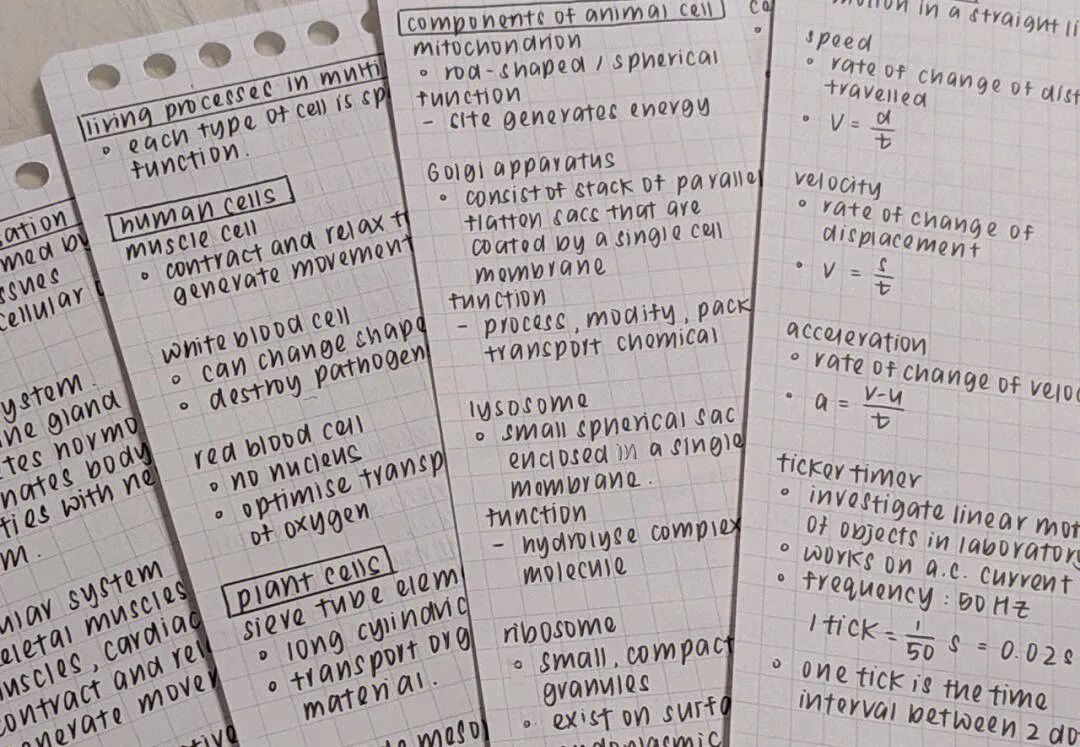 sation
med by
ssues
cellular
ystem.
ine gland
tes normo
nates body
ties with ne
m.
ular system
eletal muscles
uscles, cardiac
contract and rel
enerate mover
living processes in multi
◦ each type of cell is sp
function.
human cells
muscle cell
◦ contract and relax t
generate movement
white blood cell
◦ can change shape
◦ destroy pathogen
red blood cell
◦ no nucleus
◦ optimise transp
of oxygen
plant cells
sieve tube elem
◦ long cylindric
◦ transport org
material.
mesol
components of animal cell
mitochondrion
◦ rod-shaped / spherical
function
- site generates energy
Golgi apparatus
◦ consist of stack of paralle
flatten sacs that are
coated by a single cell
membrane
function
- process, modify, pack
transport chemical
lysosome
◦ small spherical sac
enclosed in a single
membrane.
function
- hydrolyse complex
molecule
ribosome
◦ small, compact
granules
◦ exist on surfa
endoplasmic
co
motion in a straight li
speed
◦ rate of change of dist
travelled
◦ v = d/t
velocity
◦ rate of change of
displacement
◦ v = s/t
acceleration
◦ rate of change of veloc
◦ a = v-u/t
ticker timer
◦ investigate linear mot
of objects in laboratory
◦ works on a.c. current
◦ frequency : 50 Hz
1 tick = 1/50 s = 0.02s
◦ one tick is the time
interval between 2 do